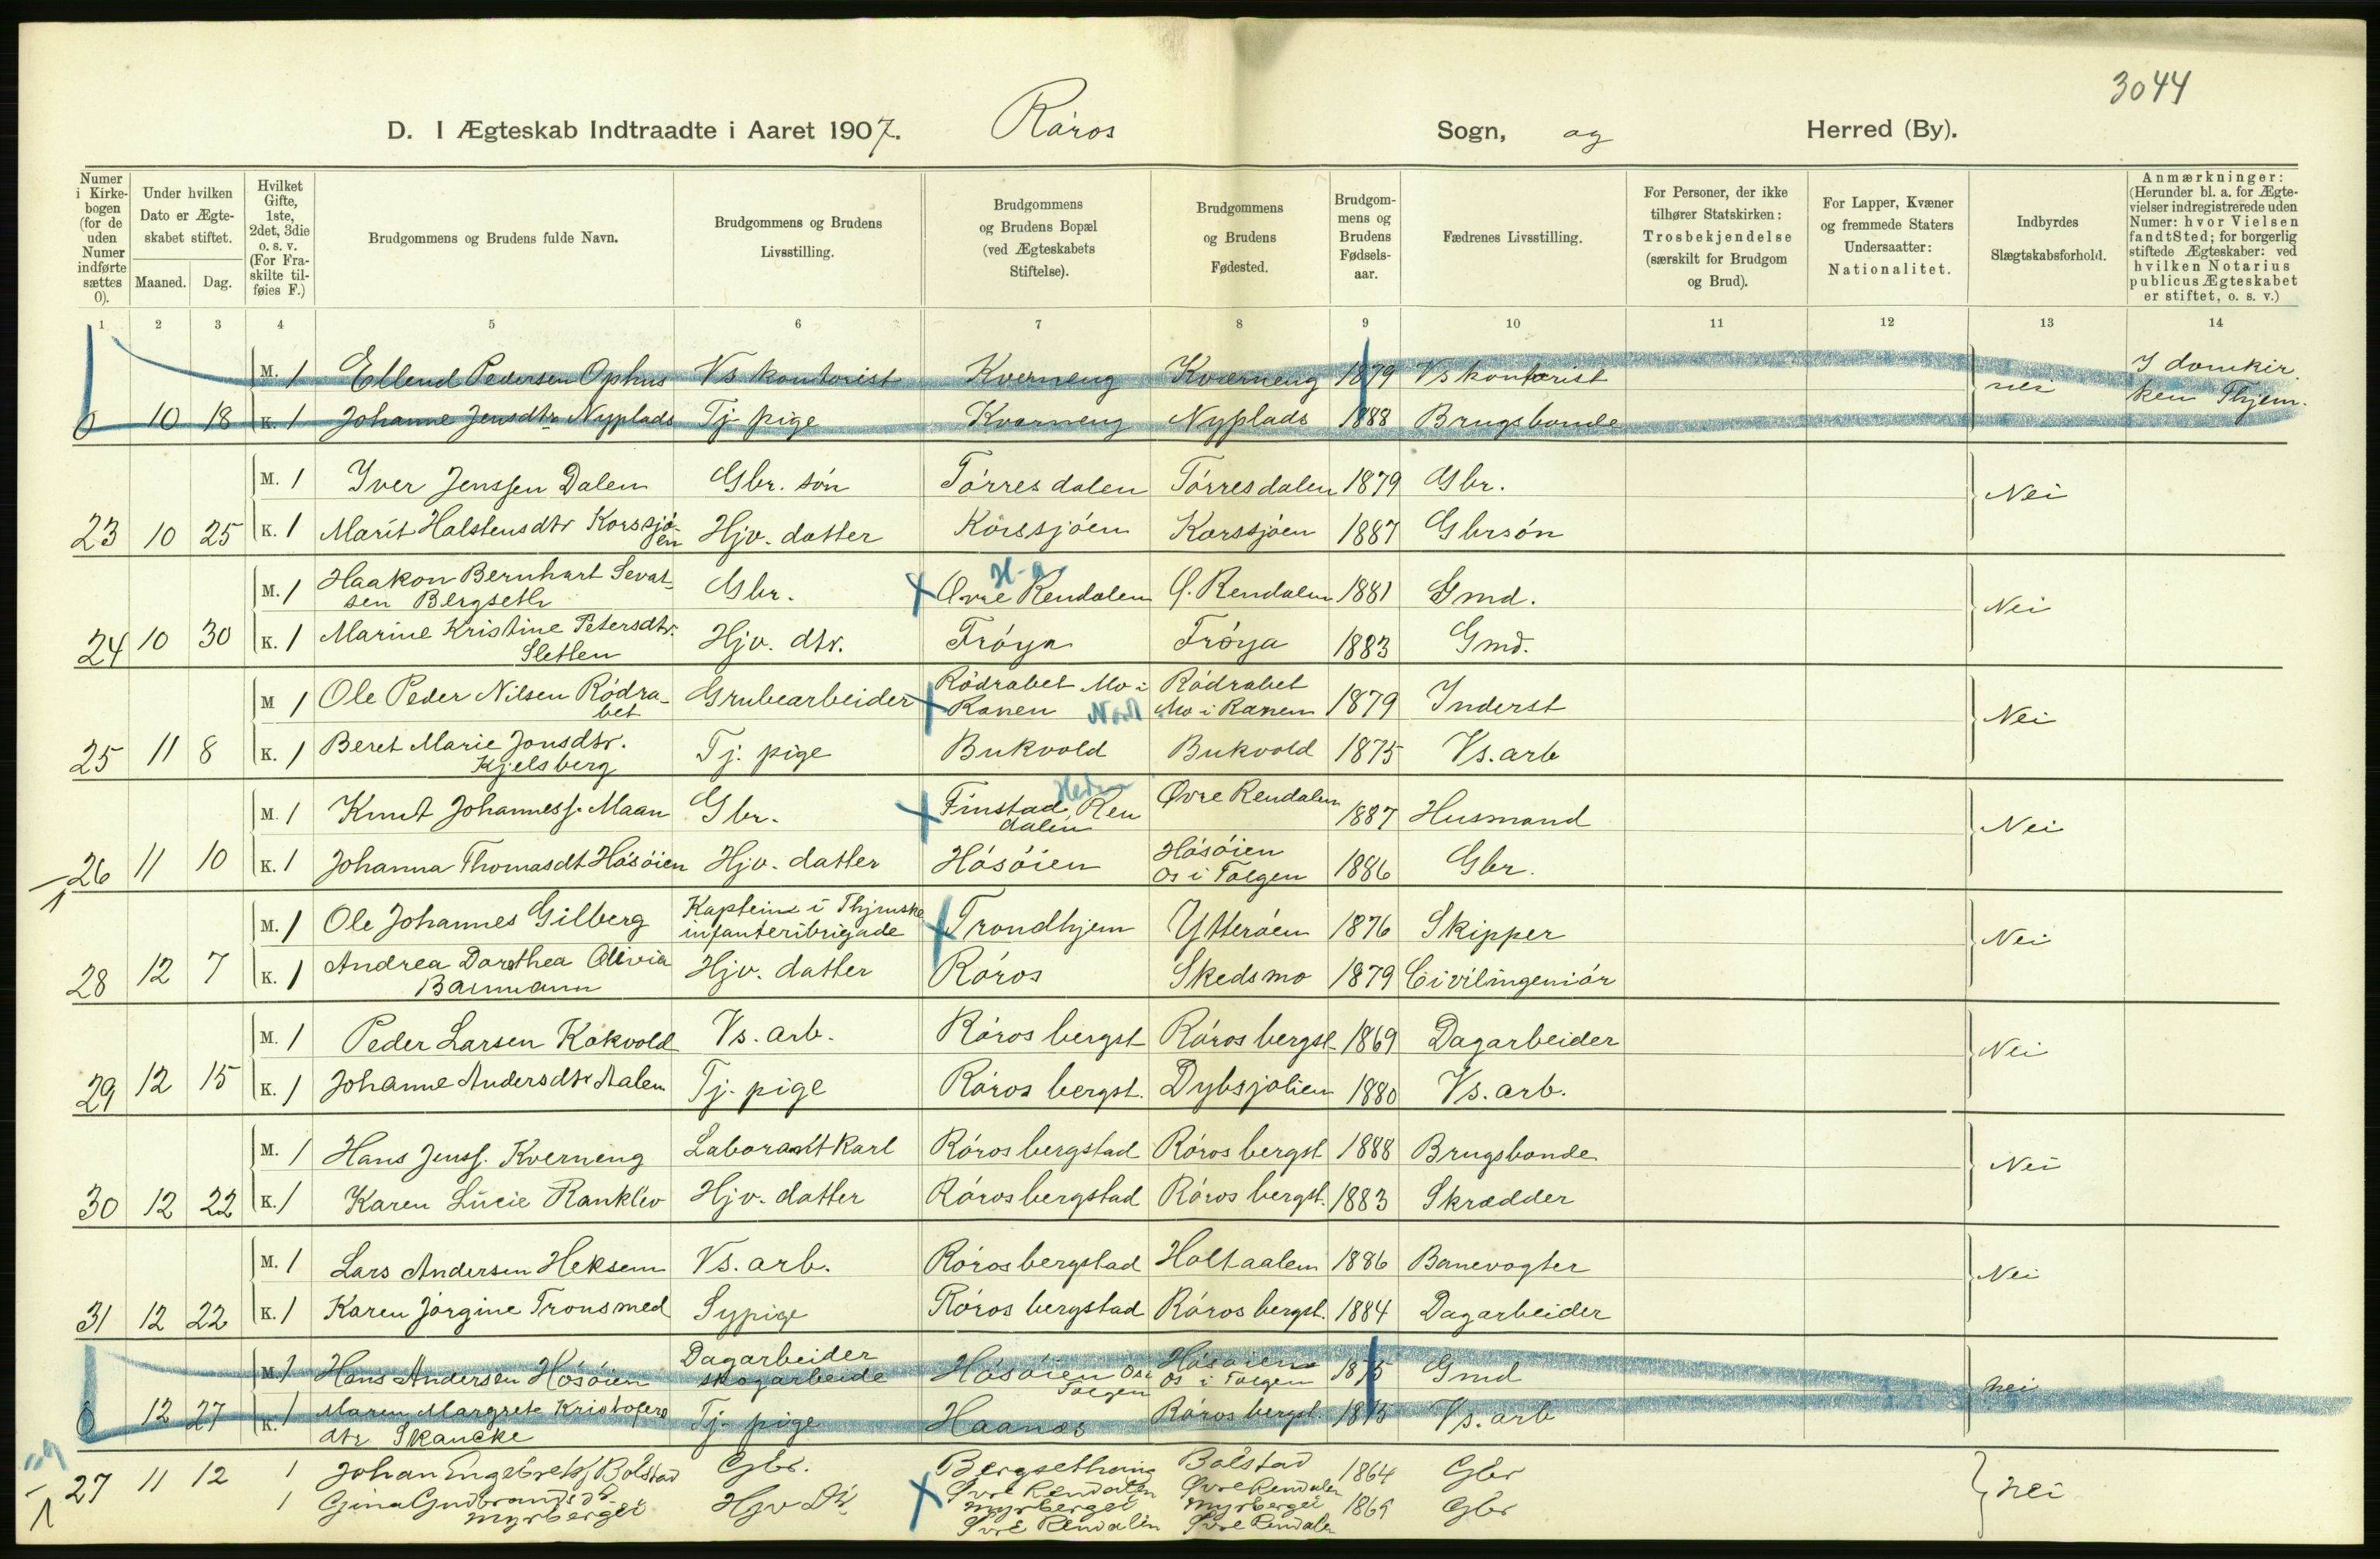 3044
D. I Ægteskab Indtraadte i Aaret 1907. Róros Sogn, og Herred (By).
Numer i Kirke-bogen (for de uden Numer indførte sættes 0).
Under hvilken Dato er Ægte-skabet stiftet.
Maaned. Dag.
Hvilket Gifte, 1ste, 2det, 3die o. s. v. (For Fra-skilte til-føies F.)
Brudgommens og Brudens fulde Navn.
Brudgommens og Brudens Livsstilling.
Brudgommens og Brudens Bopæl (ved Ægteskabets Stiftelse).
Brudgommens og Brudens Fødested.
Brudgom-mens og Brudens Fødsels-aar.
Fædrenes Livsstilling.
For Personer, der ikke tilhører Statskirken: Trosbekjendelse (særskilt for Brudgom og Brud).
For Lapper, Kvæner og fremmede Staters Undersaatter: Nationalitet.
Indbyrdes Slægtskabsforhold.
Anmærkninger: (Herunder bl. a. for Ægte-vielser indregistrerede uden Numer: hvor Vielsen fandt Sted; for borgerlig stiftede Ægteskaber: ved hvilken Notarius publicus Ægteskabet er stiftet, o. s. v.)
1 2 3 4 5 6 7 8 9 10 11 12 13 14
M. 1 Ellend Pedersen Ophus Vs. kontorist Kverneng Kværneng 1879 Vs kontorist nei I domkir.
ken Thjem.
0 10 18 K. 1 Johanne Jensdtr Nyplads Tj. pige Kverneng Nyplads 1888 Brugsbonde
M. 1 Iver Jenssen Dalen Gbr. són Tórresdalen Tórresdalen 1879 Gbr. Nei
23 10 25 K. 1 Marit Halstensdtr Korssjó-
en Hjv. datter Korssjóen Korssjóen 1887 Gbrsón
M. 1 Haakon Bernhart Sevat-
sen Bergseth Gbr. H-a Øvre Rendalen Ø. Rendalen 1881 Gmd. Nei
24 10 30 K. 1 Marine Kristine Petersdtr.
Sletten Hjv. dtr. Fróya Fróya 1883 Gmd.
M 1 Ole Peder Nilsen Ródra-
bet Grubearbeider Ródrabet Mo i
Ranen Nordl Ródrabet
Mo i Ranen 1879 Inderst Nei
25 11 8 K. 1 Beret Marie Jonsdtr.
Kjelsberg Tj. pige Bukvold Bukvold 1875 Vs. arb
M. 1 Knut Johannesf. Maan Gbr. Hedm Finstad, Ren
dalen Øvre Rendalen 1887 Husmand Nei
26 11 10 K. 1 Johanna Thomasdt Hósóien Hjv. datter Hósóien Hósóien
Os i Tolgen 1886 Gbr.
M. 1 Ole Johannes Gilberg Kaptein i Thjmske
infanteribrigade Trondhjem Ytteróen 1876 Skipper Nei
28 12 7 K. 1 Andrea Dorothea Olivia
Hjv. datter Róros Skedsmo 1879 Civilingeniór
M. 1 Peder Larsen Kokvold Vs. arb. Róros bergst Róros bergst 1869 Dagarbeider Nei
29 12 15 K. 1 Johanne Andersdtr Aalen Tj. pige Róros bergst. Dybsjólien 1880 Vs. arb.
M. 1 Hans Jensf. Kverneng Laborantkarl Róros bergstad Róros bergst 1888 Brugsbonde Nei
30 12 22 K. 1 Karen Lucie Ranklev Hjv. datter Róros bergstad Róros bergst. 1883 Skrædder
M. 1 Lars Andersen Heksem Vs. arb. Róros bergstad Holtaalen 1886 Banevogter Nei
31 12 22 K. 1 Karen Jórgine Tronsmed Sypige Róros bergstad Róros bergst. 1884 Dagarbeider
M. 1 Hans Andersen Hósóien Dagarbeider
skogarbeide Hósóien Os i
Tolgen Hósóien
Os i Tolgen 1875 Gmd nei
0 12 27 K. 1 Maren Margrete Kristofers
dtr Skancke Tj. pige Haanes Róros bergst. 1875 Vs. arb
27 11 12 1 Johan Engebretsf Bolstad Gbr. Bergsethaug
Øvre Rendalen Bolstad
Øvre Rendalen 1864 Gbr nei
1 Gina Gudbrandsdtr
Myrberget Hjv Dtr Myrberget
Øvre Rendalen Myrberget
Øvre Rendalen 1869 Gbr